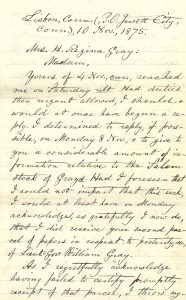 Lisbon, Conn. (P.O. Jewett City,
Conn.), 10 Nov., 1875.
Mrs. H. Regina Gray:
Madam,
Yours of 4 Nov., reached
me on Saturday. Had duties
then urgent allowed, I should
would at once have begun a re-
ply. I determined to reply, if pos-
sible, on Monday 8 Nov., & to give to
you a considerable amount of in-
formation relative to the Salem
stock of Grays. Had I foreseen that
I would not impart that this week,
I would at least have on Monday
acknowledged, as gratefully I now do,
that I did receive your second par-
cel of papers in respect to posterity
of Lieut. Gov. William Gray.
As I regretfully acknowledge
having failed to certify promptly
receipt of that parcel, I throw my